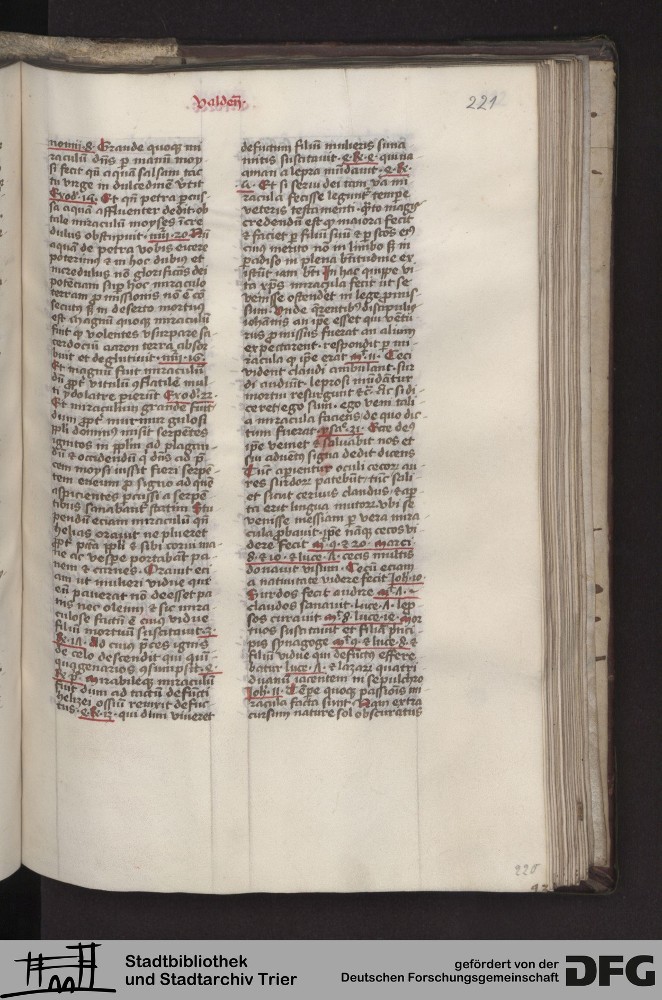 Valden̄.
221
nomii · 8 · Grande quoqꝫ mi
raculū dn̄s p̲ manū moy
si fecit qn̄ aquā salsam tac
tu v̄ge in dulcedinē v̄tit
Exod · 15 · Et qn̄ petra p̲cus
sa aquā affluenter dedit · ob
tale miraculū moyses īcre
dulus obstipuit ·
aquā de petra vobis eicere
poterimꝰ & in hoc dubiꝰ et
incredulus nō glorificās dei
potēciam sup̲ hoc miraculo
terram p̲missionis nō ē cō
secutꝰ sꝫ in deserto mortuꝰ
est Magnū quoqꝫ miraculū
fuit q̲ volentes vsurpare sa
cerdociū aaron terra absor
buit et deglutiuit · nūi · 16 ·
Et magnū fuit miraculū
dū ꝓpt̄ vitulū ꝯflatilē mul
ti ydolatre pierūt Exodi · 22 ·
Et miraculum grande fuit
dum ꝓpt̄ murmur
ppli dominꝰ misit serpētes
ignitos in pplm ad plagan
dū & occidendū q̲ dn̄s ad p̄
cem moysi iussit fieri serpē
tem eneum ꝓ signo ad quē
aspicientes p̲cussi a serpē
tibus sanabant̄ statim Stu
pendū eciam miraculū qn̄
helias orauit ne plueret
ꝓpt̄ pctā ppli & sibi corui ma
ne ac vespe portabāt pa
nem & carnes · Orauit eci
am ut mulieri vidue que
eū pauerat nō deesset pa
nis nec oleum & sic mira
culose factū ē cuiꝰ vidue
filiū mortuū suscitauit · 3 ·
Re · 17 · Ad cuiꝰ p̄ces ignis
de celo descendit qui quī
quagenarios ꝯsumpsit · 4 ·
Re · p̄ · Mirabileqꝫ miraculū
fuit dum ad tactū defūcti
helizei ossiū reuixit defūc
tus · 4 · R · 13 · qui dum viueret
defunctum filiū mulieris suna
mitis suscitauit · 4 · R · 4 · qui na
aman a lepra mūdauit · 4 · R ·
5 · Et si serui dei tam va mi
racula fecisse legunt̄ tempe
veteris testamenti · q̄to magis
credendū est q̲ maiora fecit
& faciet p̲ filiū suū & p̲ scōs eiꝰ
cuiꝰ merito nō in limbo sꝫ in
padiso in plena btītudine ex
istūt iam bti In hac quippe vi
ta xp̄s miracula fecit ut se
venisse ostendet in lege ꝓmis
sum · Vnde q̄rentibꝰ discipulis
iohānis an ipē esset qui vētu
rus ꝓmissus fuerat an alium
expectarent · respondit p̲ mi
racula q̲ ipē erat M · 11 · Ceci
vident claudi ambulant · sur
di audiūt · leprosi mūdātur
mortui resurgunt &c̄ · Ac si di
ceret ego sum · ego vem tali
a miracula faciens de quo dic
tum fuerat · ysa · 35 · Ecce deꝰ
ipē veniet & saluabit nos et
sui aduētꝰ signa dedit dicens
Tūc apientur oculi cecoꝝ au
res surdoꝝ patebūt · tūc sali
et sicut ceruus claudus · & ap̲
ta erit lingua mutoꝝ vbi se
venisse messiam p̲ vera mira
cula ꝓbauit · ipē nāqꝫ cecos vi
dere fecit M · 9 · & 20 · Marci
8 · & 10 · & luce · 7 · cecis multis
donauit visum · Cecū eciam
a natiuitate videre fecit Joh · 10 ·
Surdos fecit audire M · 7 ·
claudos sanauit · luce · 7 · lep̲
sos curauit M · 8 · luce · 17 · Mor
tuos suscitauit et filiā p̄nci
pis synagoge M · 9 · & luce · 8 · &
filiū vidue qui defūctꝰ effere
batur luce · 7 · & lazarū quatri
duanū iacentem in sepulchro
Joh · 11 · Tēpe quoqꝫ passionis mi
racula facta sunt · Nam extra
cursum nature sol obscuratus
220
Stadtbibliothek
und Stadtarchiv Trier
gefördert von der
Deutschen Forschungsgemeinschaft
DFG